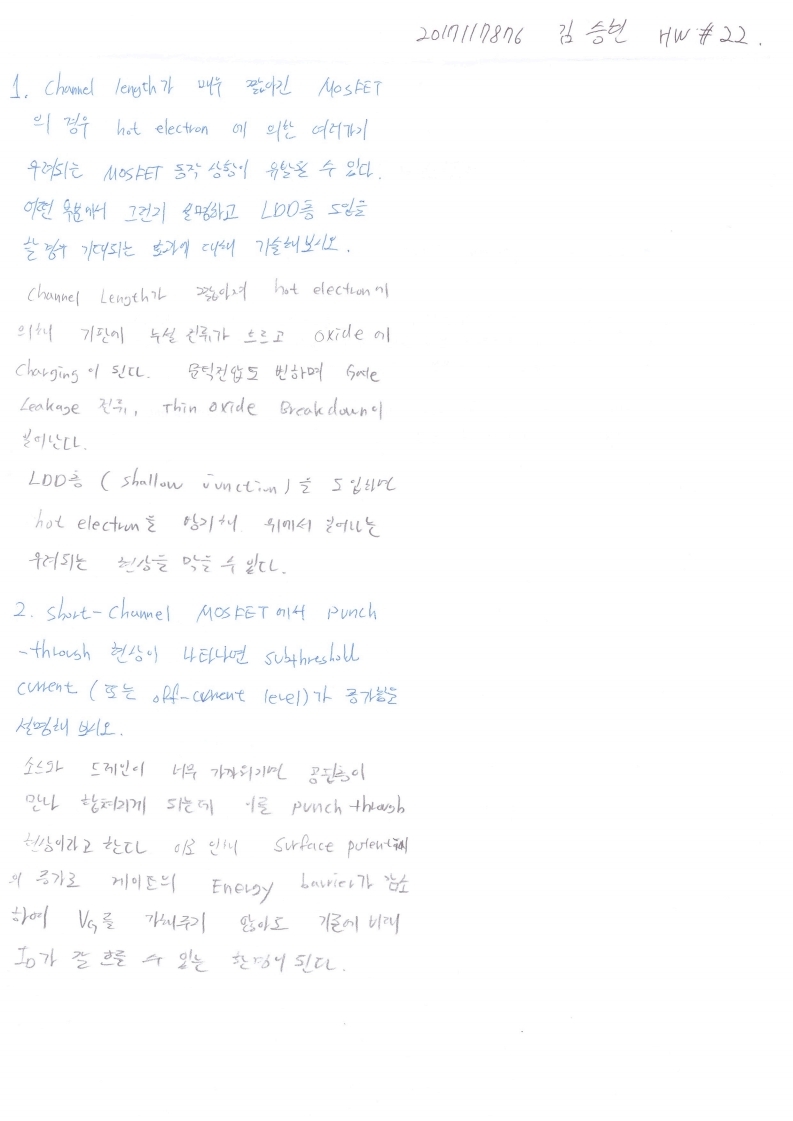 2017117876 김승현 HW #22.
1. Channel length가 매우 짧아진 MOSFET
의 경우 hot electron 에 의한 여러가지
우려되는 MOSFET 동작 상황이 유발될 수 있다.
어떤 부분에서 그런지 설명하고 LDD층 도입을
할 경우 기대되는 효과에 대해 기술해보시오.
Channel Length가 짧아져 hot electron에
의해 기판에 누설 전류가 흐르고 oxide에
Charging이 된다. 문턱전압도 변하며 Gate
Leakage 전류, Thin oxide Breakdown이
일어난다.
LDD층 (shallow junction)을 도입하면
hot electron을 방지해 위에서 일어나는
우려되는 현상을 막을 수 있다.
2. Short-Channel MOSFET에서 punch
-through 현상이 나타나면 subthreshold
current (또는 off-current level)가 증가함을
설명해 보시오.
소스와 드레인이 너무 가까워지면 공핍층이
만나 합쳐지게 되는데 이를 punch through
현상이라고 한다 이로 인해 Surface potential
의 증가로 게이트의 Energy barrier가 감소
하여 VG를 가해주지 않아도 기존에 비해
ID가 잘 흐를 수 있는 환경이 된다.